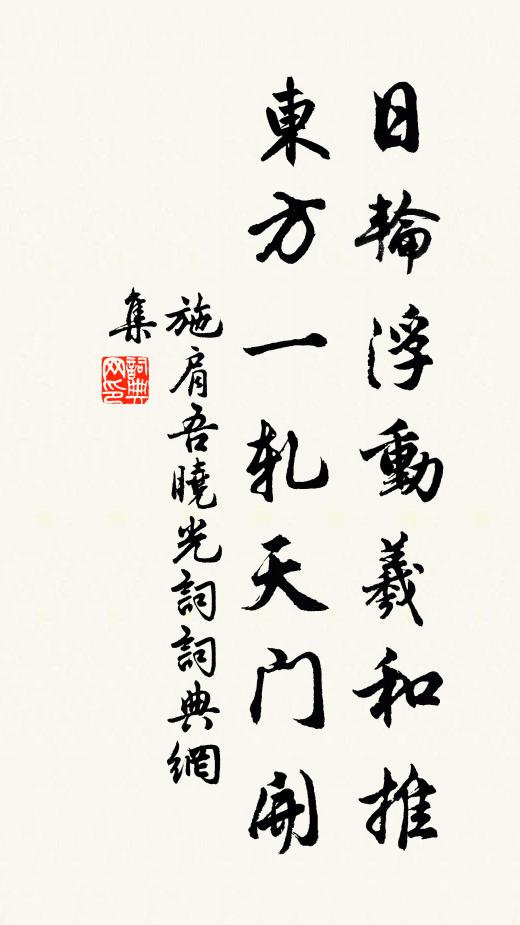 日輪浮動羲和推
東方一軋天門開
施肩吾曉光詞詞典網
集
詞典
网印